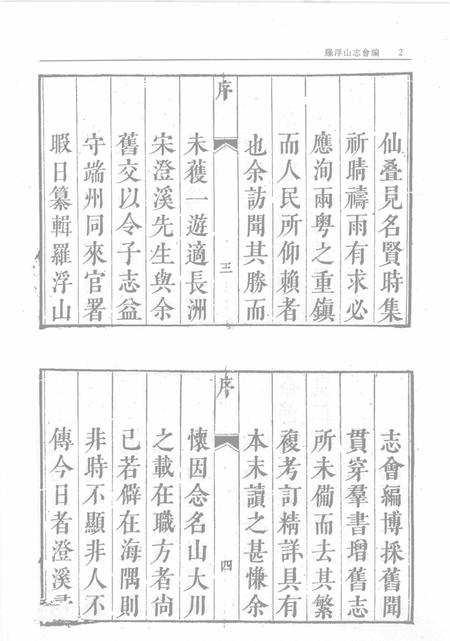 羅浮山志會編 2
仙疊見名賢時集
祈晴禱雨有求必
應洵兩粵之重鎮
而人民所仰賴者
也余訪聞其勝而
序 三
未獲一遊適長洲
宋澄溪先生與余
舊交以令子志益
守端州同來官署
暇日纂輯羅浮山
志會編博採舊聞
貫穿羣書增舊志
所未備而去其繁
複考訂精詳具有
本末讀之甚慊余
序 四
懷因念名山大川
之載在職方者尚
已若僻在海隅則
非時不顯非人不
傳今日者澄溪